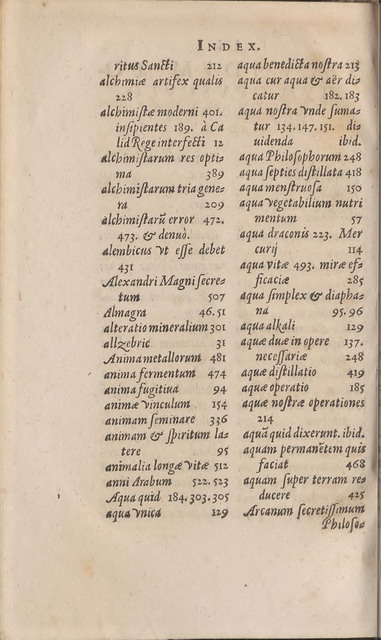 INDEX.
ritus Sancti 212
alchimiæ artifex qualis
228
alchimistæ moderni 401.
insipientes 189. à Ca
lid Rege interfecti 12
alchimistarum res opti-
ma 389
alchimistarum tria gene-
ra 209
alchimistarũ error 472.
473. & denuò.
alembicus vt esse debet
431
Alexandri Magni secre-
tum 507
Almagra 46.51
alteratio mineralium 301
allzebric 31
Anima metallorum 481
anima fermentum 474
anima fugitiua 94
animæ vinculum 154
animam seminare 336
animam & spiritum la-
tere 95
animalia longæ vitæ 512
anni Arabum 522.523
Aqua quid 184.303.305
aqua vnica 129
aqua benedicta nostra 213
aqua cur aqua & aër di-
catur 182.183
aqua nostra vnde suma-
tur 134.147.151. di-
uidenda ibid.
aqua Philosophorum 248
aqua septies distillata 418
aqua menstruosa 150
aqua vegetabilium nutri
mentum 57
aqua draconis 223. Mer
curij 114
aqua vitæ 493. miræ ef-
ficaciæ 285
aqua simplex & diapha-
na 95.96
aqua alkali 129
aquæ duæ in opere 137.
necessariæ 248
aquæ distillatio 419
aquæ operatio 185
aquæ nostræ operationes
214
aquã quid dixerunt. ibid.
aquam permanẽtem quis
faciat 468
aquam super terram re-
ducere 425
Arcanum secretissimum
Philoso-